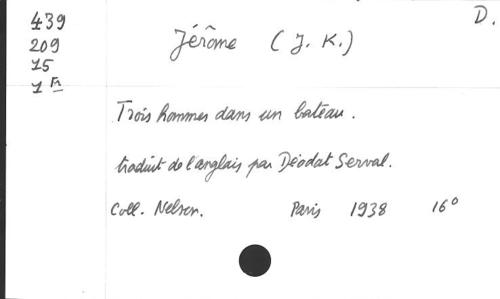 D.
439
209
15
1 Fr
Jérôme (J. K.)
Trois hommes dans un bateau.
traduit de l'anglais par Déodat Serval.
Coll. Nelson. Paris 1938 16°